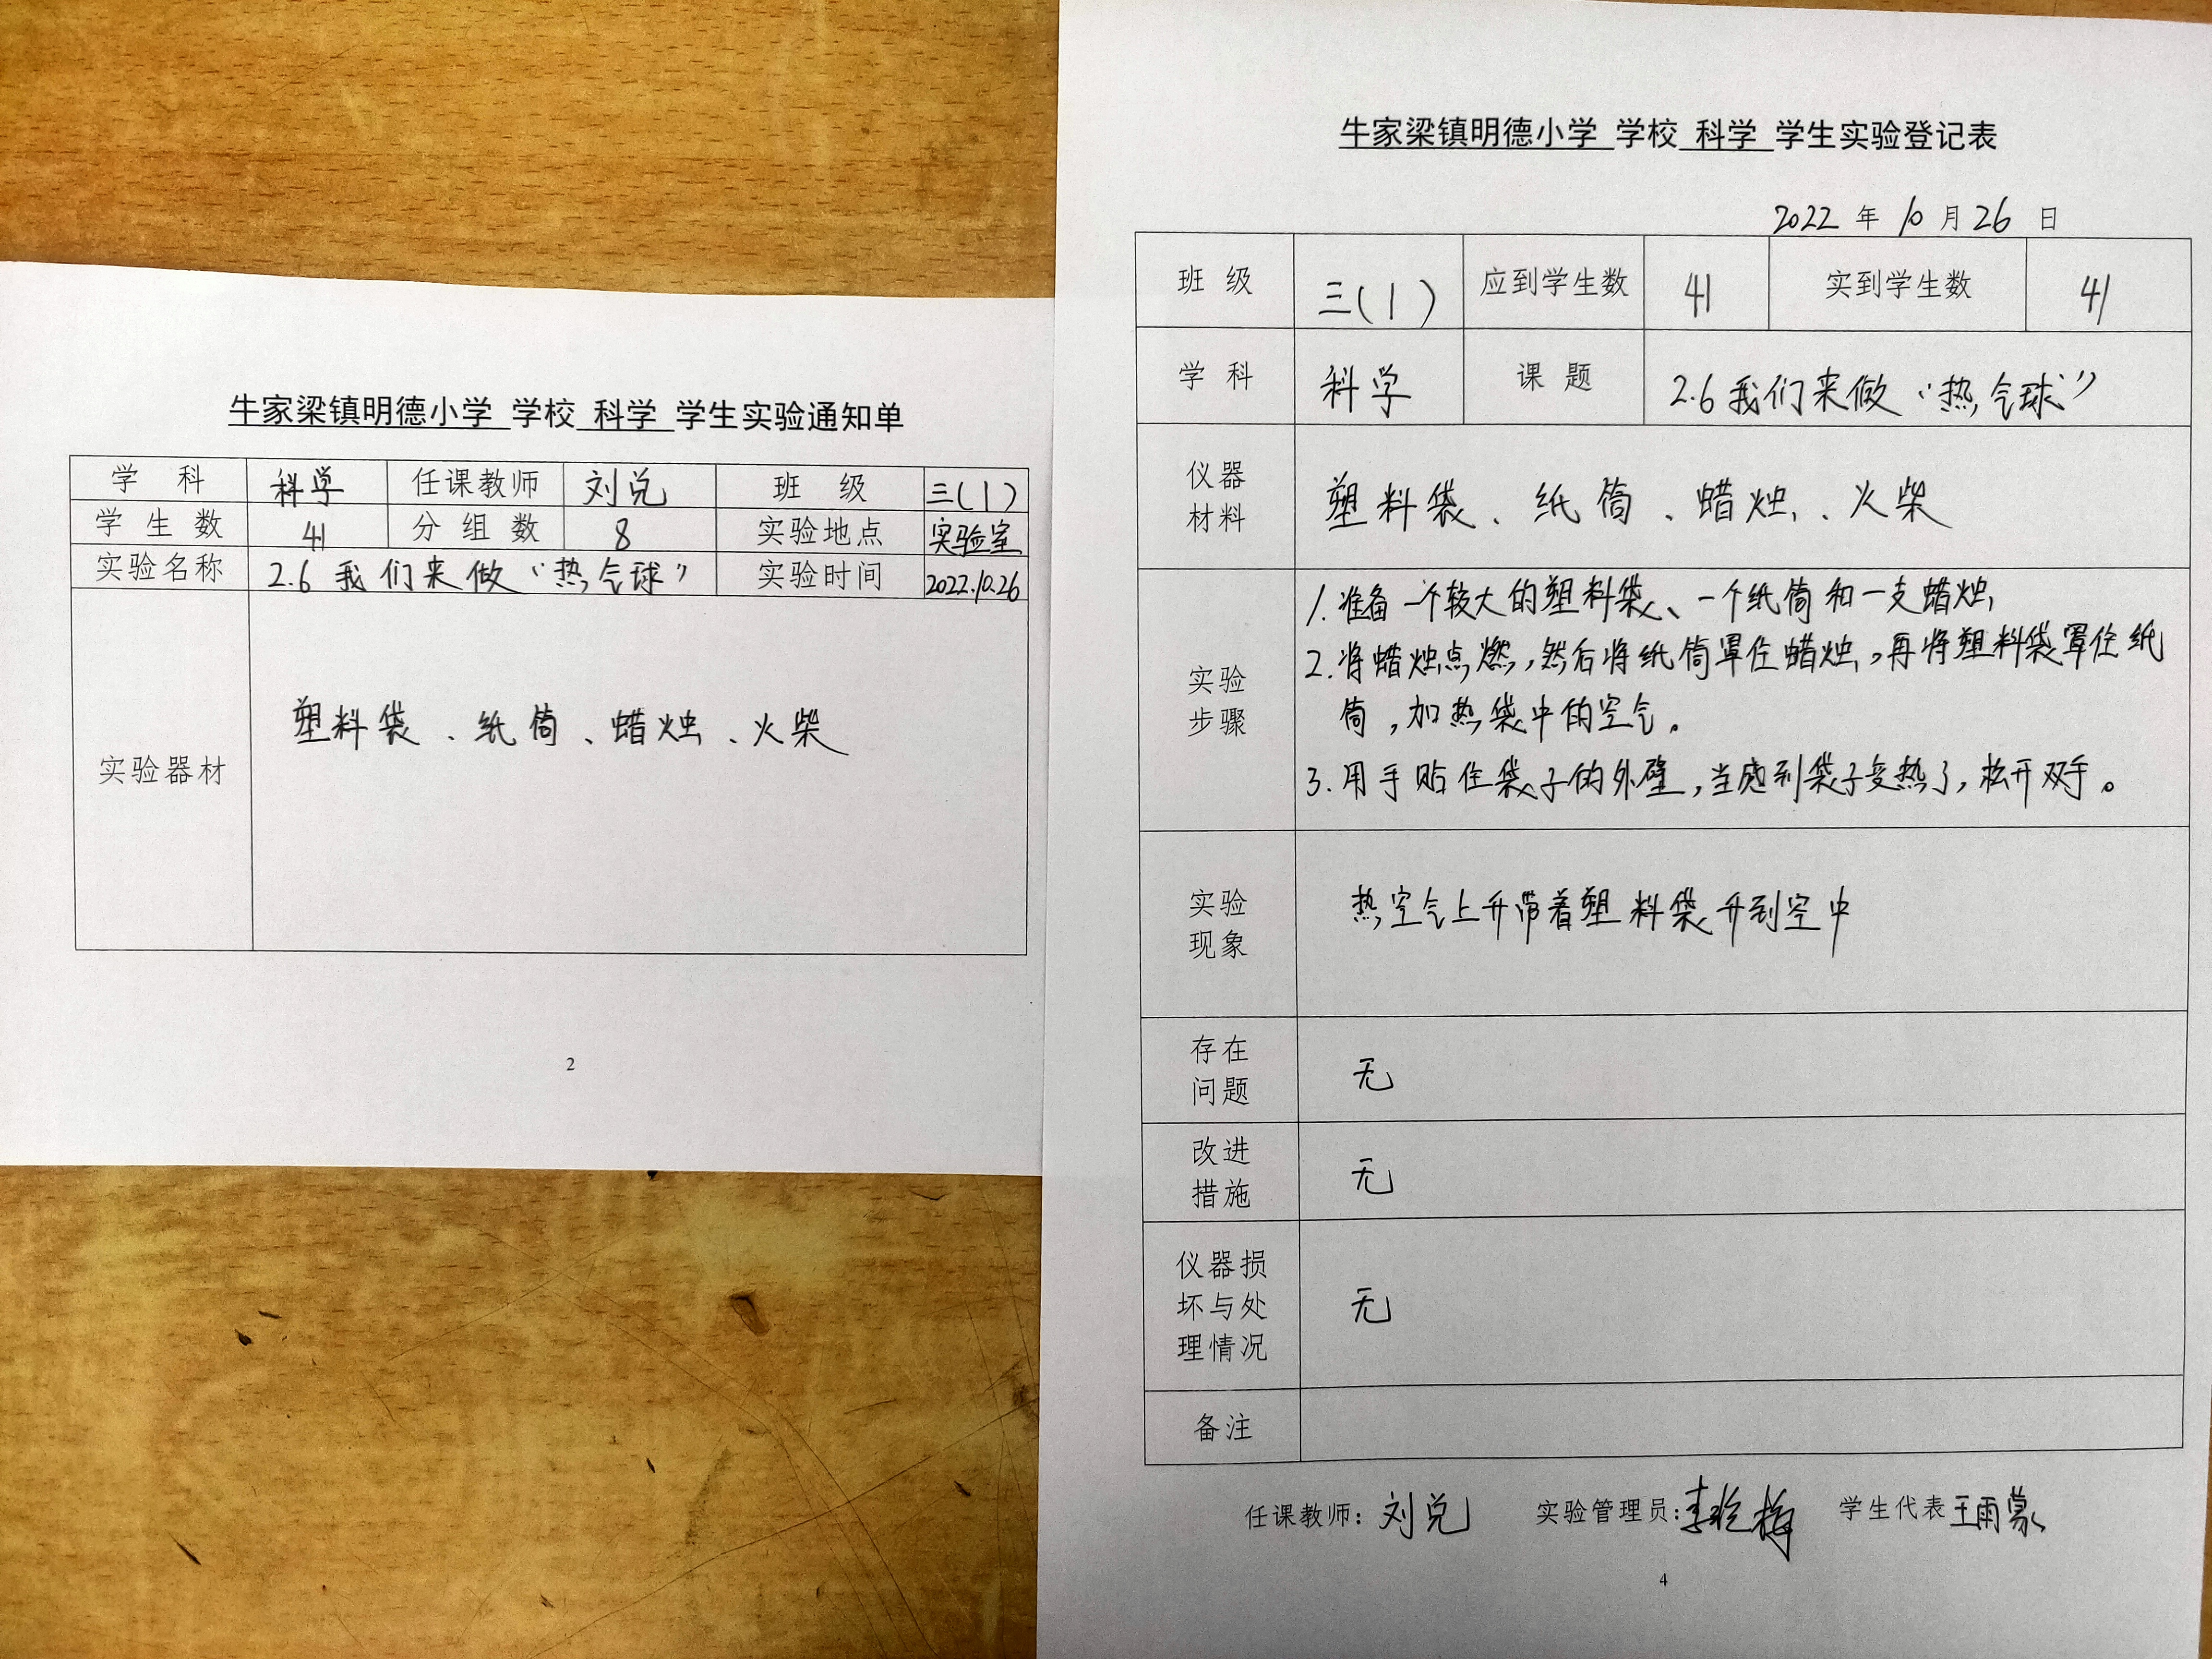 牛家梁镇明德小学 学校 科学 学生实验通知单
学 科 科学 任课教师 刘兑 班 级 三(1)
学 生 数 41 分 组 数 8 实验地点 实验室
实验名称 2.6 我们来做“热气球” 实验时间 2022.10.26
实验器材 塑料袋、纸筒、蜡烛、火柴
2
牛家梁镇明德小学 学校 科学 学生实验登记表
2022 年 10 月 26 日
班 级 三(1) 应到学生数 41 实到学生数 41
学 科 科学 课 题 2.6 我们来做“热气球”
仪器
材料
塑料袋、纸筒、蜡烛、火柴
实验
步骤
1.准备一个较大的塑料袋、一个纸筒和一支蜡烛
2.将蜡烛点燃,然后将纸筒罩住蜡烛,再将塑料袋罩住纸
筒,加热袋中的空气。
3.用手贴住袋子的外壁,当感到袋子变热了,松开双手。
实验
现象
热空气上升带着塑料袋升到空中
存在
问题
无
改进
措施
无
仪器损
坏与处
理情况
无
备注
任课教师:刘兑 实验管理员:李 梅 学生代表 王雨蒙
4